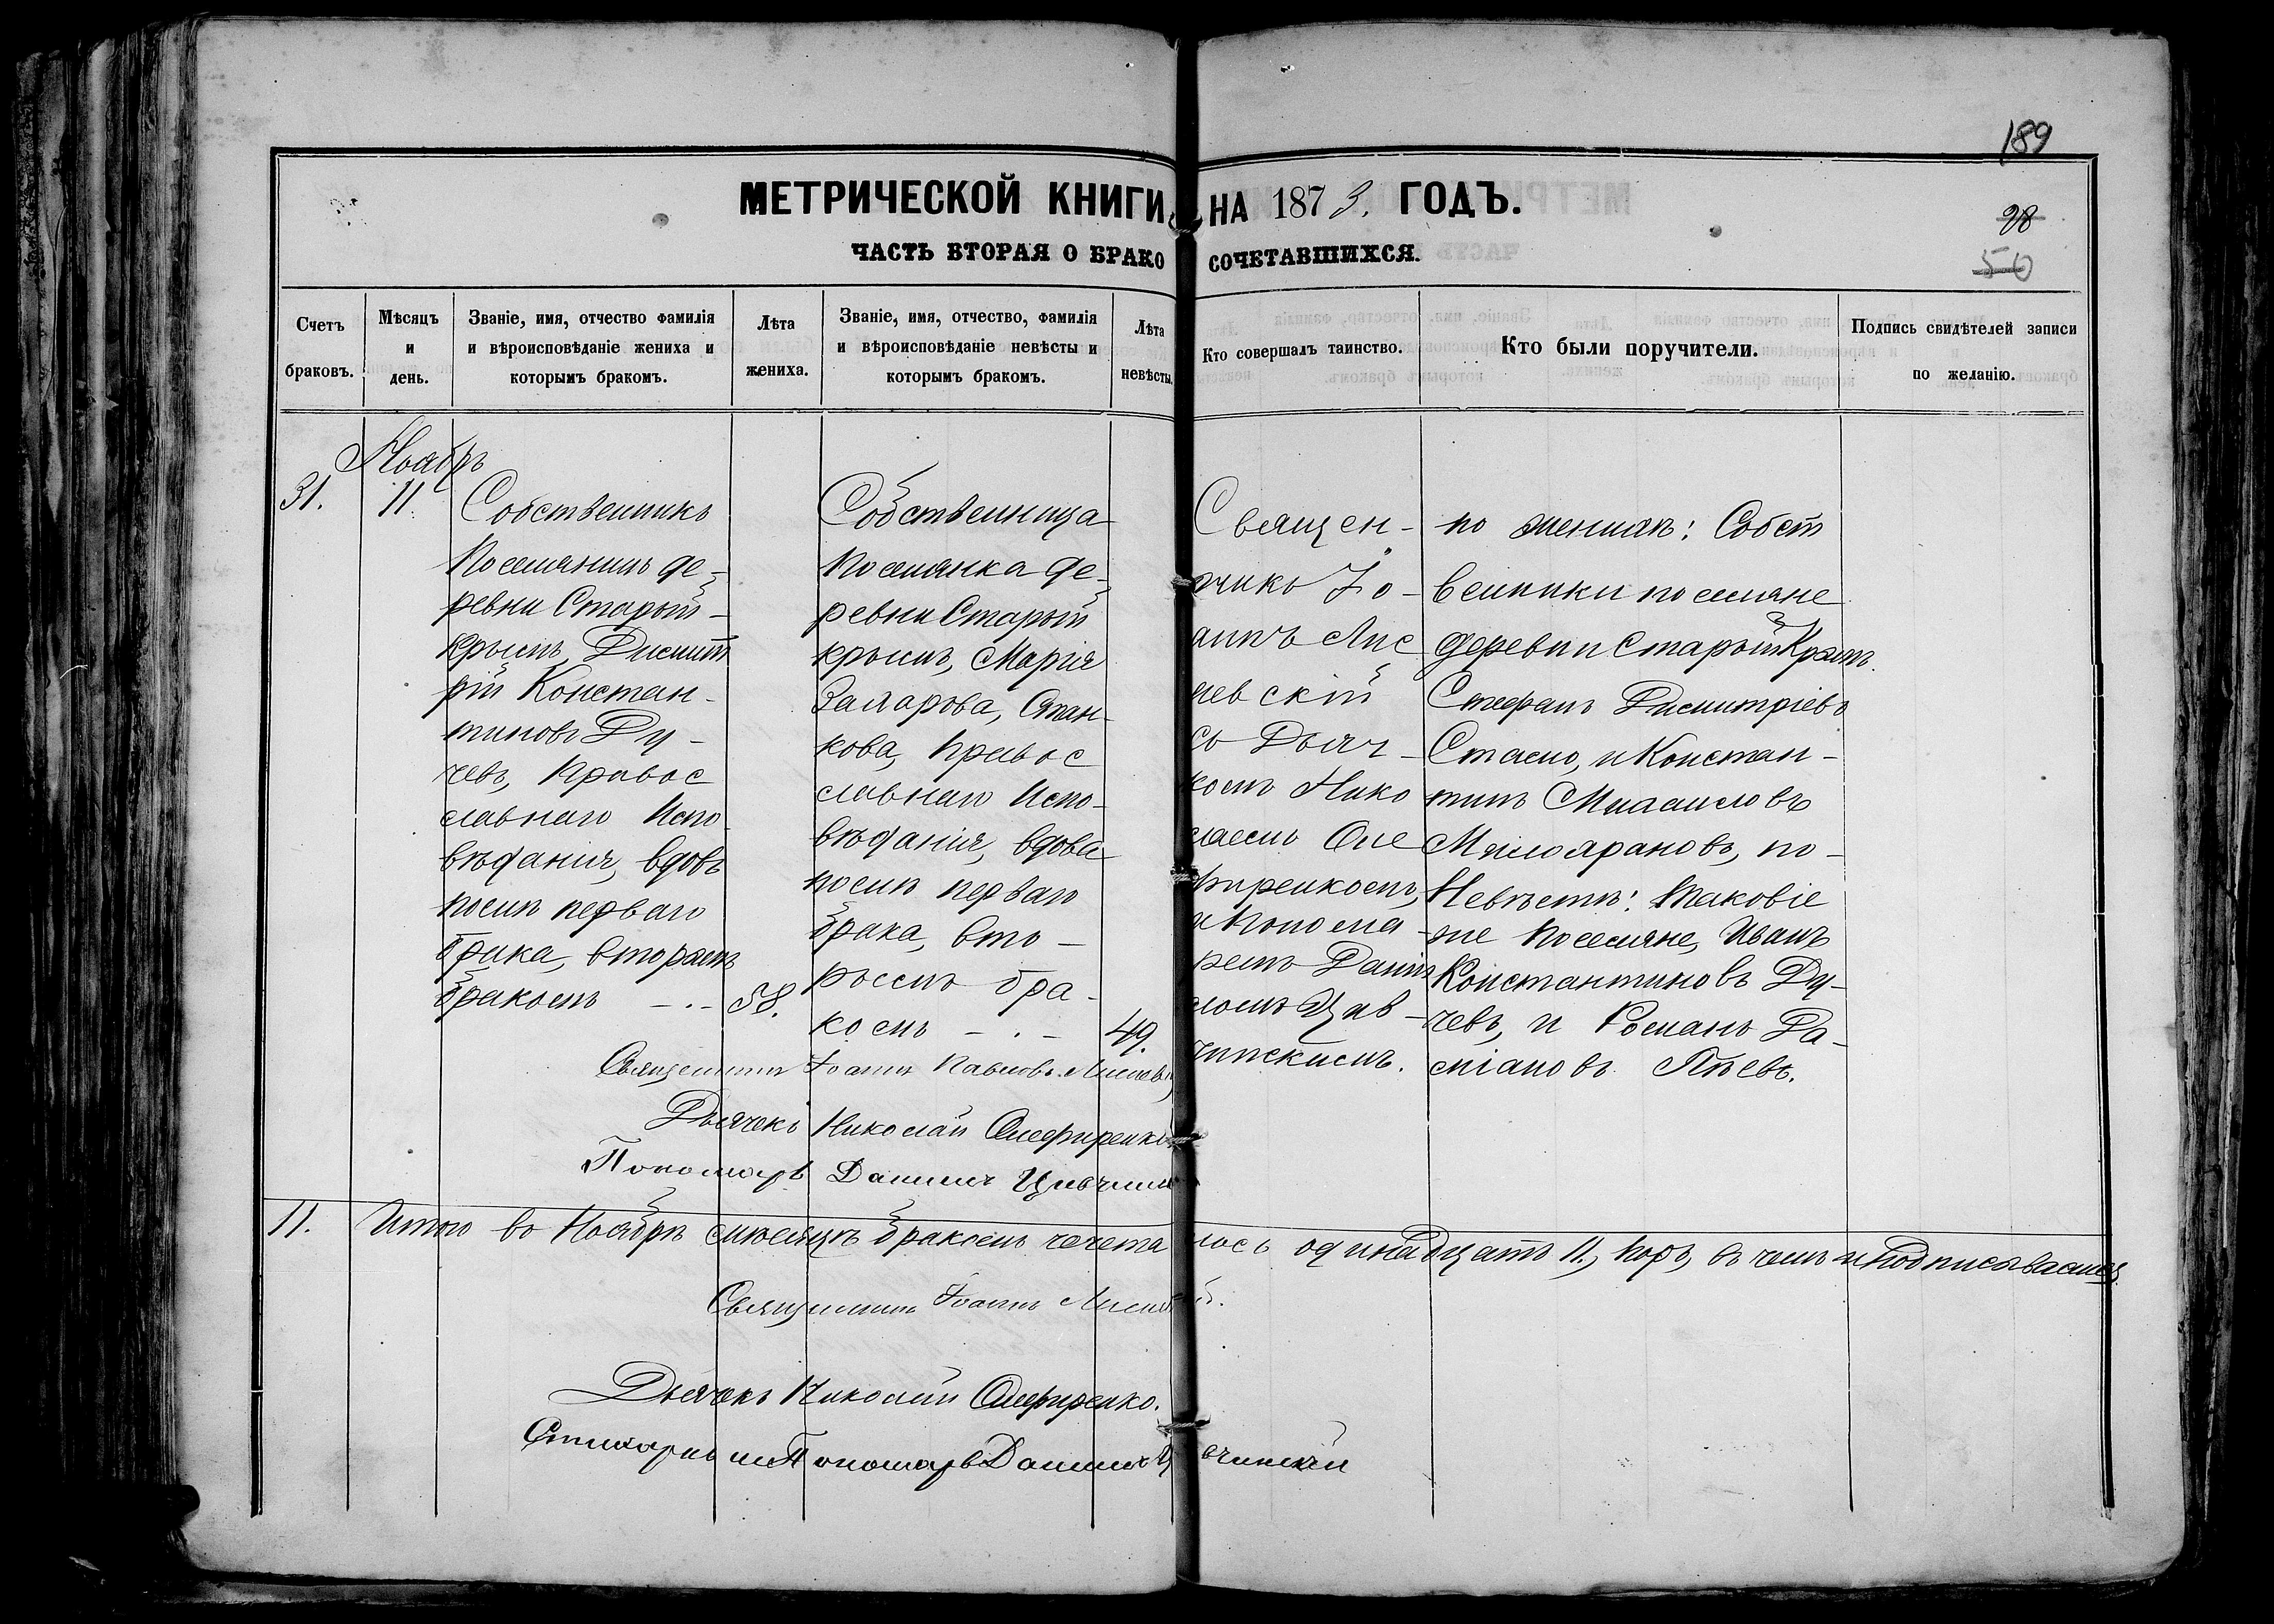 189
МЕТРИЧЕСКОЙ КНИГИ НА 1873. ГОДЪ.
28
ЧАСТЬ ВТОРАЯ О БРАКОСОЧЕТАВШИХСЯ.
50
Счетъ
браковъ.
Мѣсяцъ
и
день.
Званіе, имя, отчество фамилія
и вѣроисповѣданіе жениха и
которымъ бракомъ.
Лѣта
жениха.
Званіе, имя, отчество, фамилія
и вѣроисповѣданіе невѣсты и
которымъ бракомъ.
Лѣта
невѣсты.
Кто совершалъ таинство.
Кто были поручители.
Подпись свидѣтелей записи
по желанію.
Ноябрь
31.
11.
Собственникъ
Поселянинъ де-
ревни Старый-
Крымъ, Димит
рій Констан-
тиновъ Ду-
чевъ, Правос
лавнаго Испо
вѣданія, вдовъ
послѣ перваго
брака, вторымъ
бракомъ -.- 58.
Собственница
Поселянка де-
ревни Старый
крымъ, Марія
кова, Правос
славнаго Испо-
вѣданія, вдова
послѣ перваго
брака, вто-
рымъ бра-
комъ -.- 49.
Священ-
никъ Іо-
аннъ Лис
невскій
съ Дьяч-
комъ Нико
лаемъ Оле
фиренкомъ,
и Понома-
ремъ Даніи
ломъ Цив-
чинскимъ.
по женихѣ: Собст
венники поселяне
деревни Старый Крымъ.
Стефанъ Димитріевъ
Стамо, и Констан-
тинъ Михаиловъ
по-
Невѣстѣ: Таковіе
же Поселяне, Иванъ
Константиновъ Ду-
чевъ, и Романъ Да-
міановъ Пѣевъ.
Священникъ Іоаннъ Павловъ
Дьячекъ Николай Олефиренко
Пономарь Даніилъ
11. Итого въ Ноябрѣ мѣсяцѣ бракомъ чечеталось одинадцать 11, поръ, въ чемъ и подписываемся
Священникъ Іоаннъ
Дьячекъ Николай Олефиренко.
Пономарь Даніилъ Цивчинскій